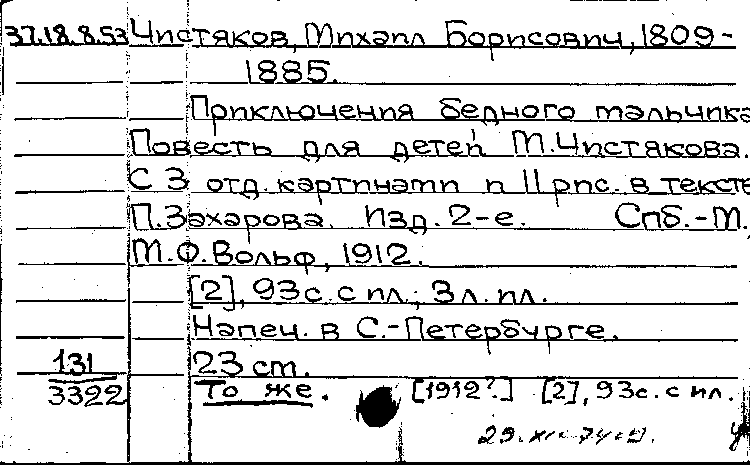 37.18.8.53 Чистяков, Михаил Борисович, 1809-
1885.
Приключения бедного мальчика
Повесть для детей М.Чистякова.
С 3 отд. картинами и 11 рис. в тексте
П.Захарова. Изд. 2-е. Спб.-М.,
М.О.Вольф, 1912.
[2], 93с. с ил.; 3л. ил.
Напеч. в С.-Петербурге.
131 23 cm.
3322 То же. [1912?] [2], 93с. с ил.